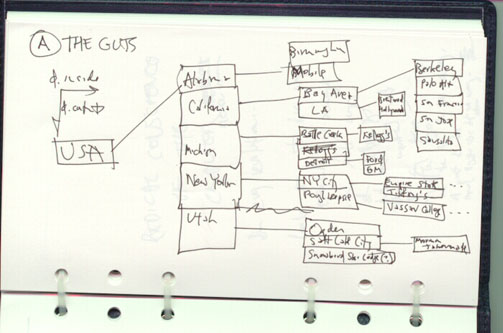 A THE GUTS
d. inside
USA
Alabama
California
Michigan
New York
Utah
Birmingham
Mobile
Bay Area
LA
Battle Creek
Kellogg's
Detroit
NY City
Poughkeepsie
Ogden
Salt Lake City
Kellogg's
Ford
GM
Empire State
Tiffany's
Vassar College
Berkeley
Palo Alt
San Franci
San Jose
Sausalito